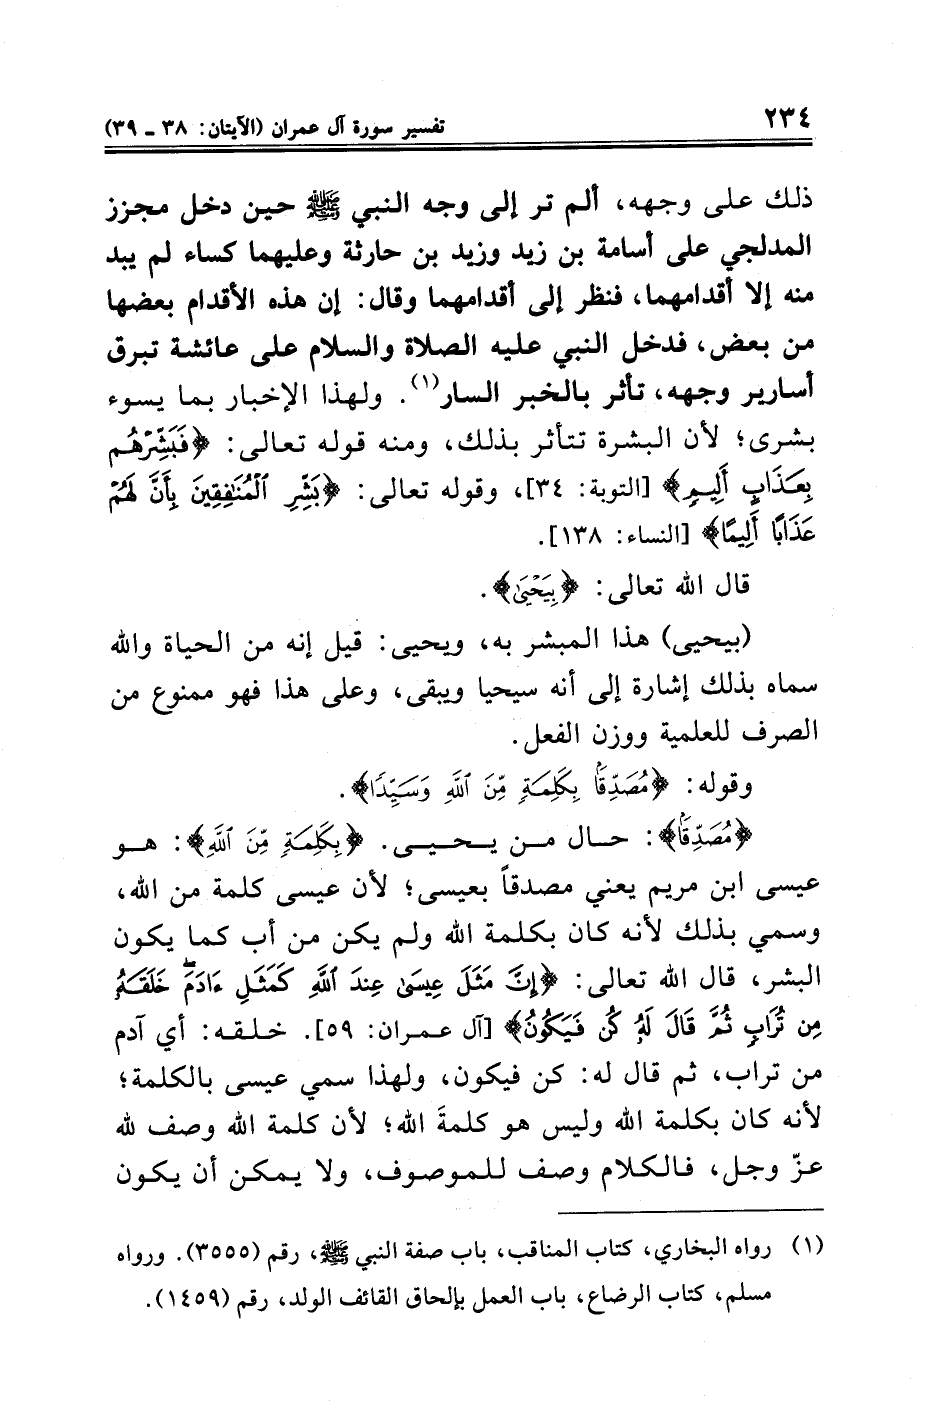 ٢٣٤ تفسير سورة آل عمران (الآيتان: ٣٨ ـ ٣٩)
ذلك على وجهه، ألم تر إلى وجه النبي ﷺ حين دخل مجزز
المدلجي على أسامة بن زيد وزيد بن حارثة وعليهما كساء لم يبد
منه إلا أقدامهما، فنظر إلى أقدامهما وقال: إن هذه الأقدام بعضها
من بعض، فدخل النبي عليه الصلاة والسلام على عائشة تبرق
أسارير وجهه، تأثر بالخبر السار(١). ولهذا الإخبار بما يسوء
بشرى؛ لأن البشرة تتأثر بذلك، ومنه قوله تعالى: ﴿فَبَشِّرْهُم
بِعَذَابٍ أَلِيمٍ﴾ [التوبة: ٣٤]، وقوله تعالى: ﴿بَشِّرِ ٱلْمُنَٰفِقِينَ بِأَنَّ لَهُمْ
عَذَابًا أَلِيمًا﴾ [النساء: ١٣٨].
قال الله تعالى: ﴿بِيَحْيَىٰ﴾.
(بيحيى) هذا المبشر به، ويحيى: قيل إنه من الحياة والله
سماه بذلك إشارة إلى أنه سيحيا ويبقى، وعلى هذا فهو ممنوع من
الصرف للعلمية ووزن الفعل.
وقوله: ﴿مُصَدِّقًۢا بِكَلِمَةٍ مِّنَ ٱللَّهِ وَسَيِّدًا﴾.
﴿مُصَدِّقًۢا﴾: حال من يحيى. ﴿بِكَلِمَةٍ مِّنَ ٱللَّهِ﴾: هو
عيسى ابن مريم يعني مصدقاً بعيسى؛ لأن عيسى كلمة من الله،
وسمي بذلك لأنه كان بكلمة الله ولم يكن من أب كما يكون
البشر، قال الله تعالى: ﴿إِنَّ مَثَلَ عِيسَىٰ عِندَ ٱللَّهِ كَمَثَلِ ءَادَمَۖ خَلَقَهُۥ
مِن تُرَابٍ ثُمَّ قَالَ لَهُۥ كُن فَيَكُونُ﴾ [آل عمران: ٥٩]. خلقه: أي آدم
من تراب، ثم قال له: كن فيكون، ولهذا سمي عيسى بالكلمة؛
لأنه كان بكلمة الله وليس هو كلمةَ الله؛ لأن كلمة الله وصف لله
عزّ وجل، فالكلام وصف للموصوف، ولا يمكن أن يكون
(١) رواه البخاري، كتاب المناقب، باب صفة النبي ﷺ، رقم (٣٥٥٥). ورواه
مسلم، كتاب الرضاع، باب العمل بإلحاق القائف الولد، رقم (١٤٥٩).